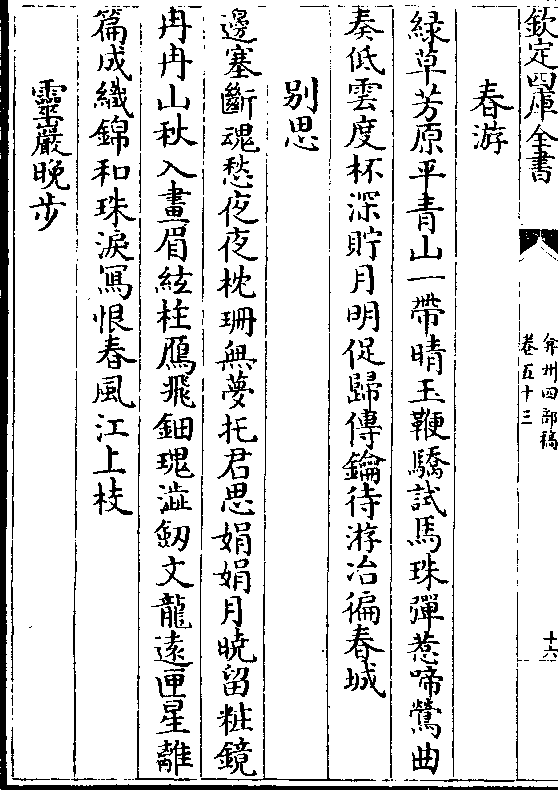 欽定四庫全書
弇州四部稿
卷五十三
十六
春游
緑草芳原平青山一帶晴玉鞭驕試馬珠彈惹啼鶯曲
奏低雲度杯深貯月明促歸傳鑰待游冶徧春城
別思
邊塞斷魂愁夜夜枕珊無夢托君思娟娟月曉留粧鏡
冉冉山秋入畫眉絃柱鴈飛鈿瑰澁釼文龍遠匣星離
篇成織錦和珠淚寫恨春風江上枝
靈巖晚步